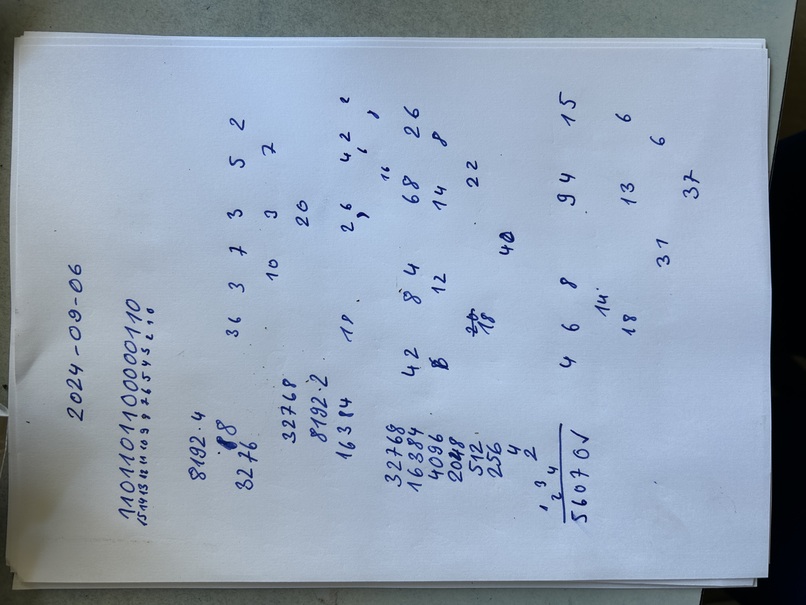 2024-09-06
1101101100000110
15 14 13 12 11 10 9 8 7 6 5 4 3 2 1 0
8192·4
36 3 7 3 5 2
3276
10 3 7
32768 20
8192·2
16384 18. 26 42 2
6 8
16
32768 42 84 68 26
16384
4096 6 12 14 8
2048
512 18 22
256
4 40
2
1 2 3 4
56070 4 6 8 94 15
14
18 13 6
31 6
37